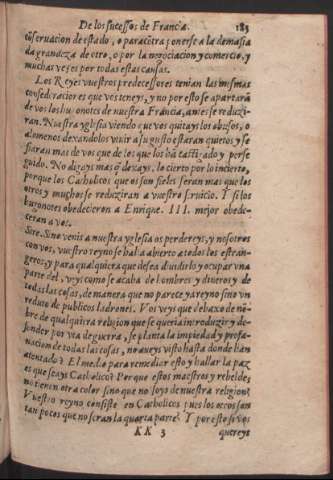 De los sucessos de Francia. 183
cõseruacion de estado, o para cõtra ponerse a la demasia
da grandeza de otro, o por la negociacion y comercio, y
muchas vezes por todas estas causas.
Los Reyes vuestros predecessores tenian las mesmas
consederaciones que vos teneys, y no por esto se apartarã
de vos los huonotes de nuestra Francia, antes se reduzi-
ran. Nuestra yglesia viendo que vos quitays los abusos, o
alomenos dexandolos viuir a su gusto estaran quietos y se
fiaran mas de vos que de los que los hã castigado y perse
guido. No digays mas q̃ dexays, lo cierto por lo incierto,
porque los Catholicos que os son fieles seran mas que los
otros y muchos se reduziran a vuestro seruicio. Y si los
hugonotes obedecieron a Enrique. III. mejor obede-
ceran a vos.
Sire. Sino venis a nuestra yglesia os perdereys, y nosotros
con vos, vuestro reyno se halla abierto a todos los estran-
geros, y para qualquiera que dessea diuidirlo y ocupar vna
parte del, veys como se acaba de hombres y dineros y de
todas las cosas, de manera que no parece ya reyno sino vn
reduto de publicos ladrones. Vos veys que debaxo de nõ-
bre de qualquiera religion que se queria introduzir y de-
fender por vea de guerra, se planta la impiedad y profa-
nacion de todas las cosas, no aueys visto hasta donde han
atentado? El medio para remediar esto y hallar la paz
es que seays Catholico? Porque estos maestros y rebeldes
no tienen otra color sino que no soys de nuestra religion?
Vuestro reyno consiste en Catholicos pues los otros son
tan pocos que no seran la quarta parte? Y por esto si vos
KK 3 quereys